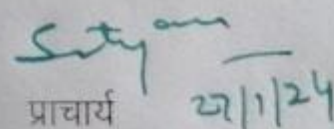 Satyam
प्राचार्य 27/1/24